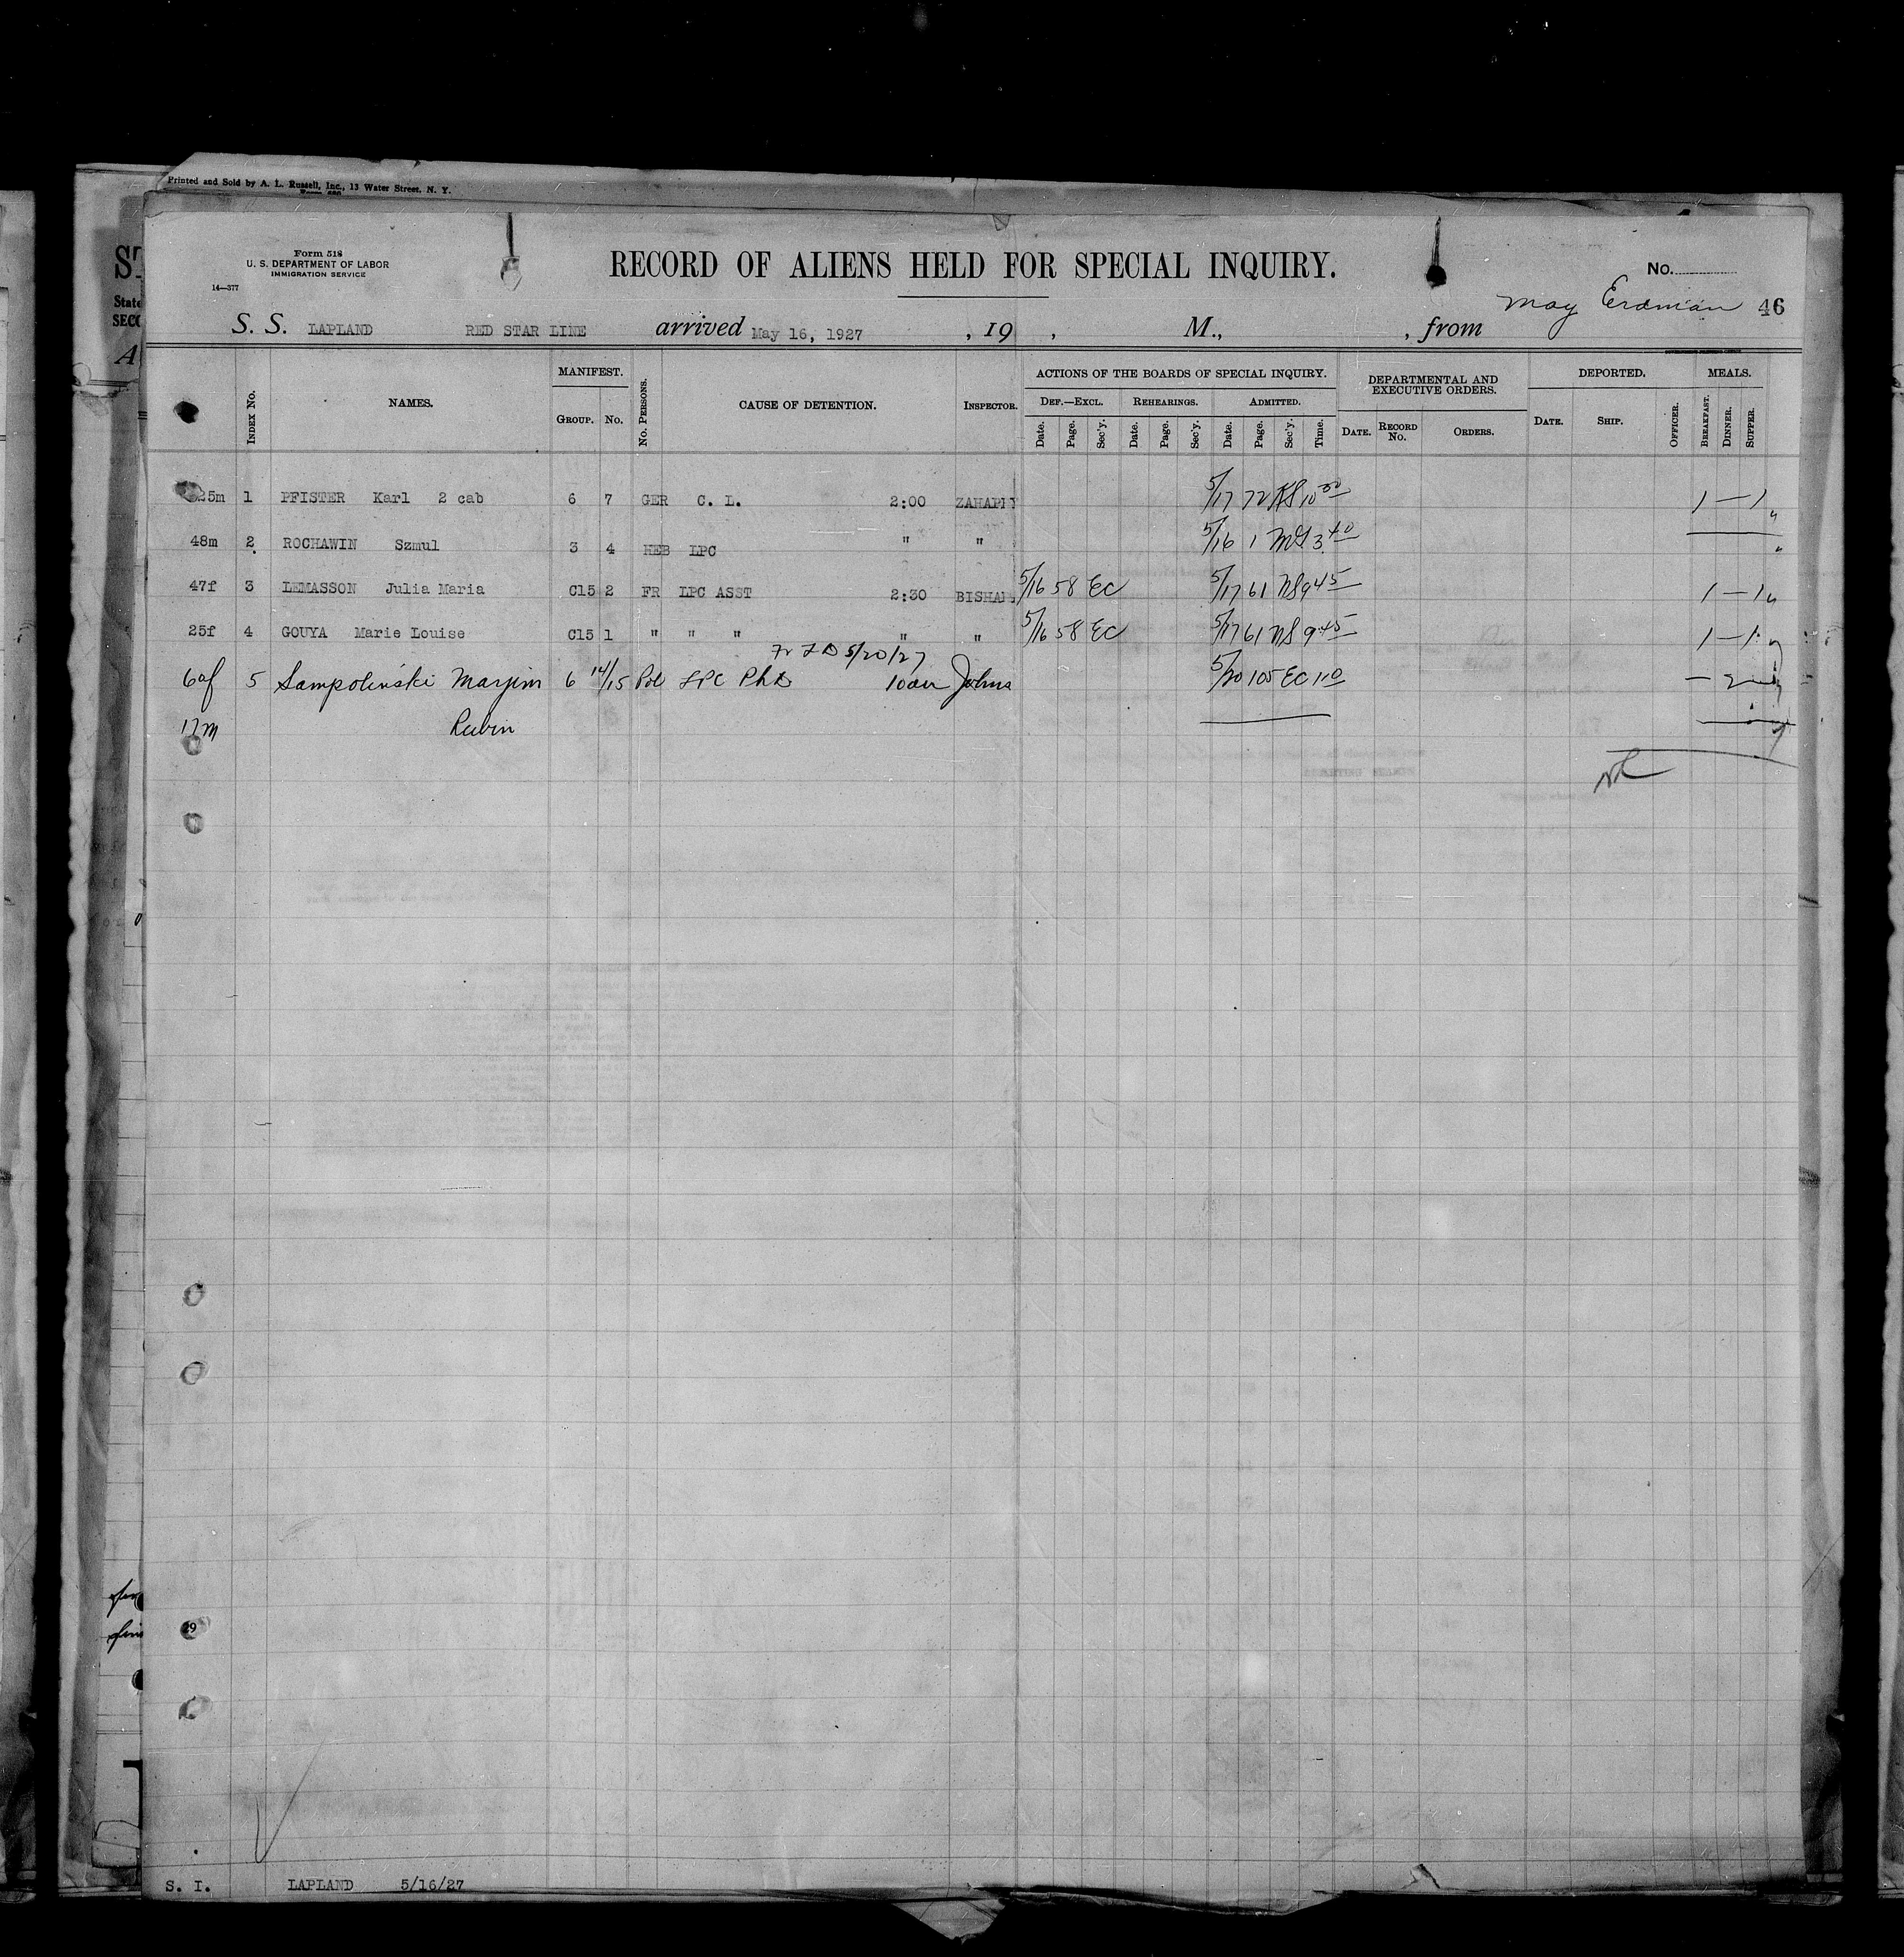 Printed and Sold by A. L. Russell, Inc., 13 Water Street, N. Y.
Form 518
U. S. DEPARTMENT OF LABOR
IMMIGRATION SERVICE
14—377
RECORD OF ALIENS HELD FOR SPECIAL INQUIRY.
No.
May Erdman 46
S. S. LAPLAND RED STAR LINE arrived May 16, 1927, 19 , M., , from
INDEX No. NAMES. MANIFEST. GROUP. No. No. PERSONS. CAUSE OF DETENTION. INSPECTOR.
ACTIONS OF THE BOARDS OF SPECIAL INQUIRY.
DEF.—EXCL. REHEARINGS. ADMITTED.
Date. Page. Sec'y. Date. Page. Sec'y. Date. Page. Sec'y. Time.
DEPARTMENTAL AND EXECUTIVE ORDERS.
DATE. RECORD No. ORDERS.
DEPORTED.
DATE. SHIP. OFFICER.
MEALS.
BREAKFAST. DINNER. SUPPER.
25m 1 PFISTER Karl 2 cab 6 7 GER C. L. 2:00 5/17 72 10 30 1 — 1
48m 2 ROCHAWIN Szmul 3 4 HEB LPC " " 5/16 1 3 40
47f 3 LEMASSON Julia Maria C15 2 FR LPC ASST 2:30 5/16 58 EC 5/17 61 NS 9 45 1 — 1
25f 4 GOUYA Marie Louise C15 1 " " " " " 5/16 58 EC 5/17 61 NS 9 45 1 — 1
5/20/27
60f 5 Sampolinski Marjim 6 14/15 Pol LPC 10am Johns 5/20 105 EC 1 10 — 2
17m Rubin
S. I. LAPLAND 5/16/27